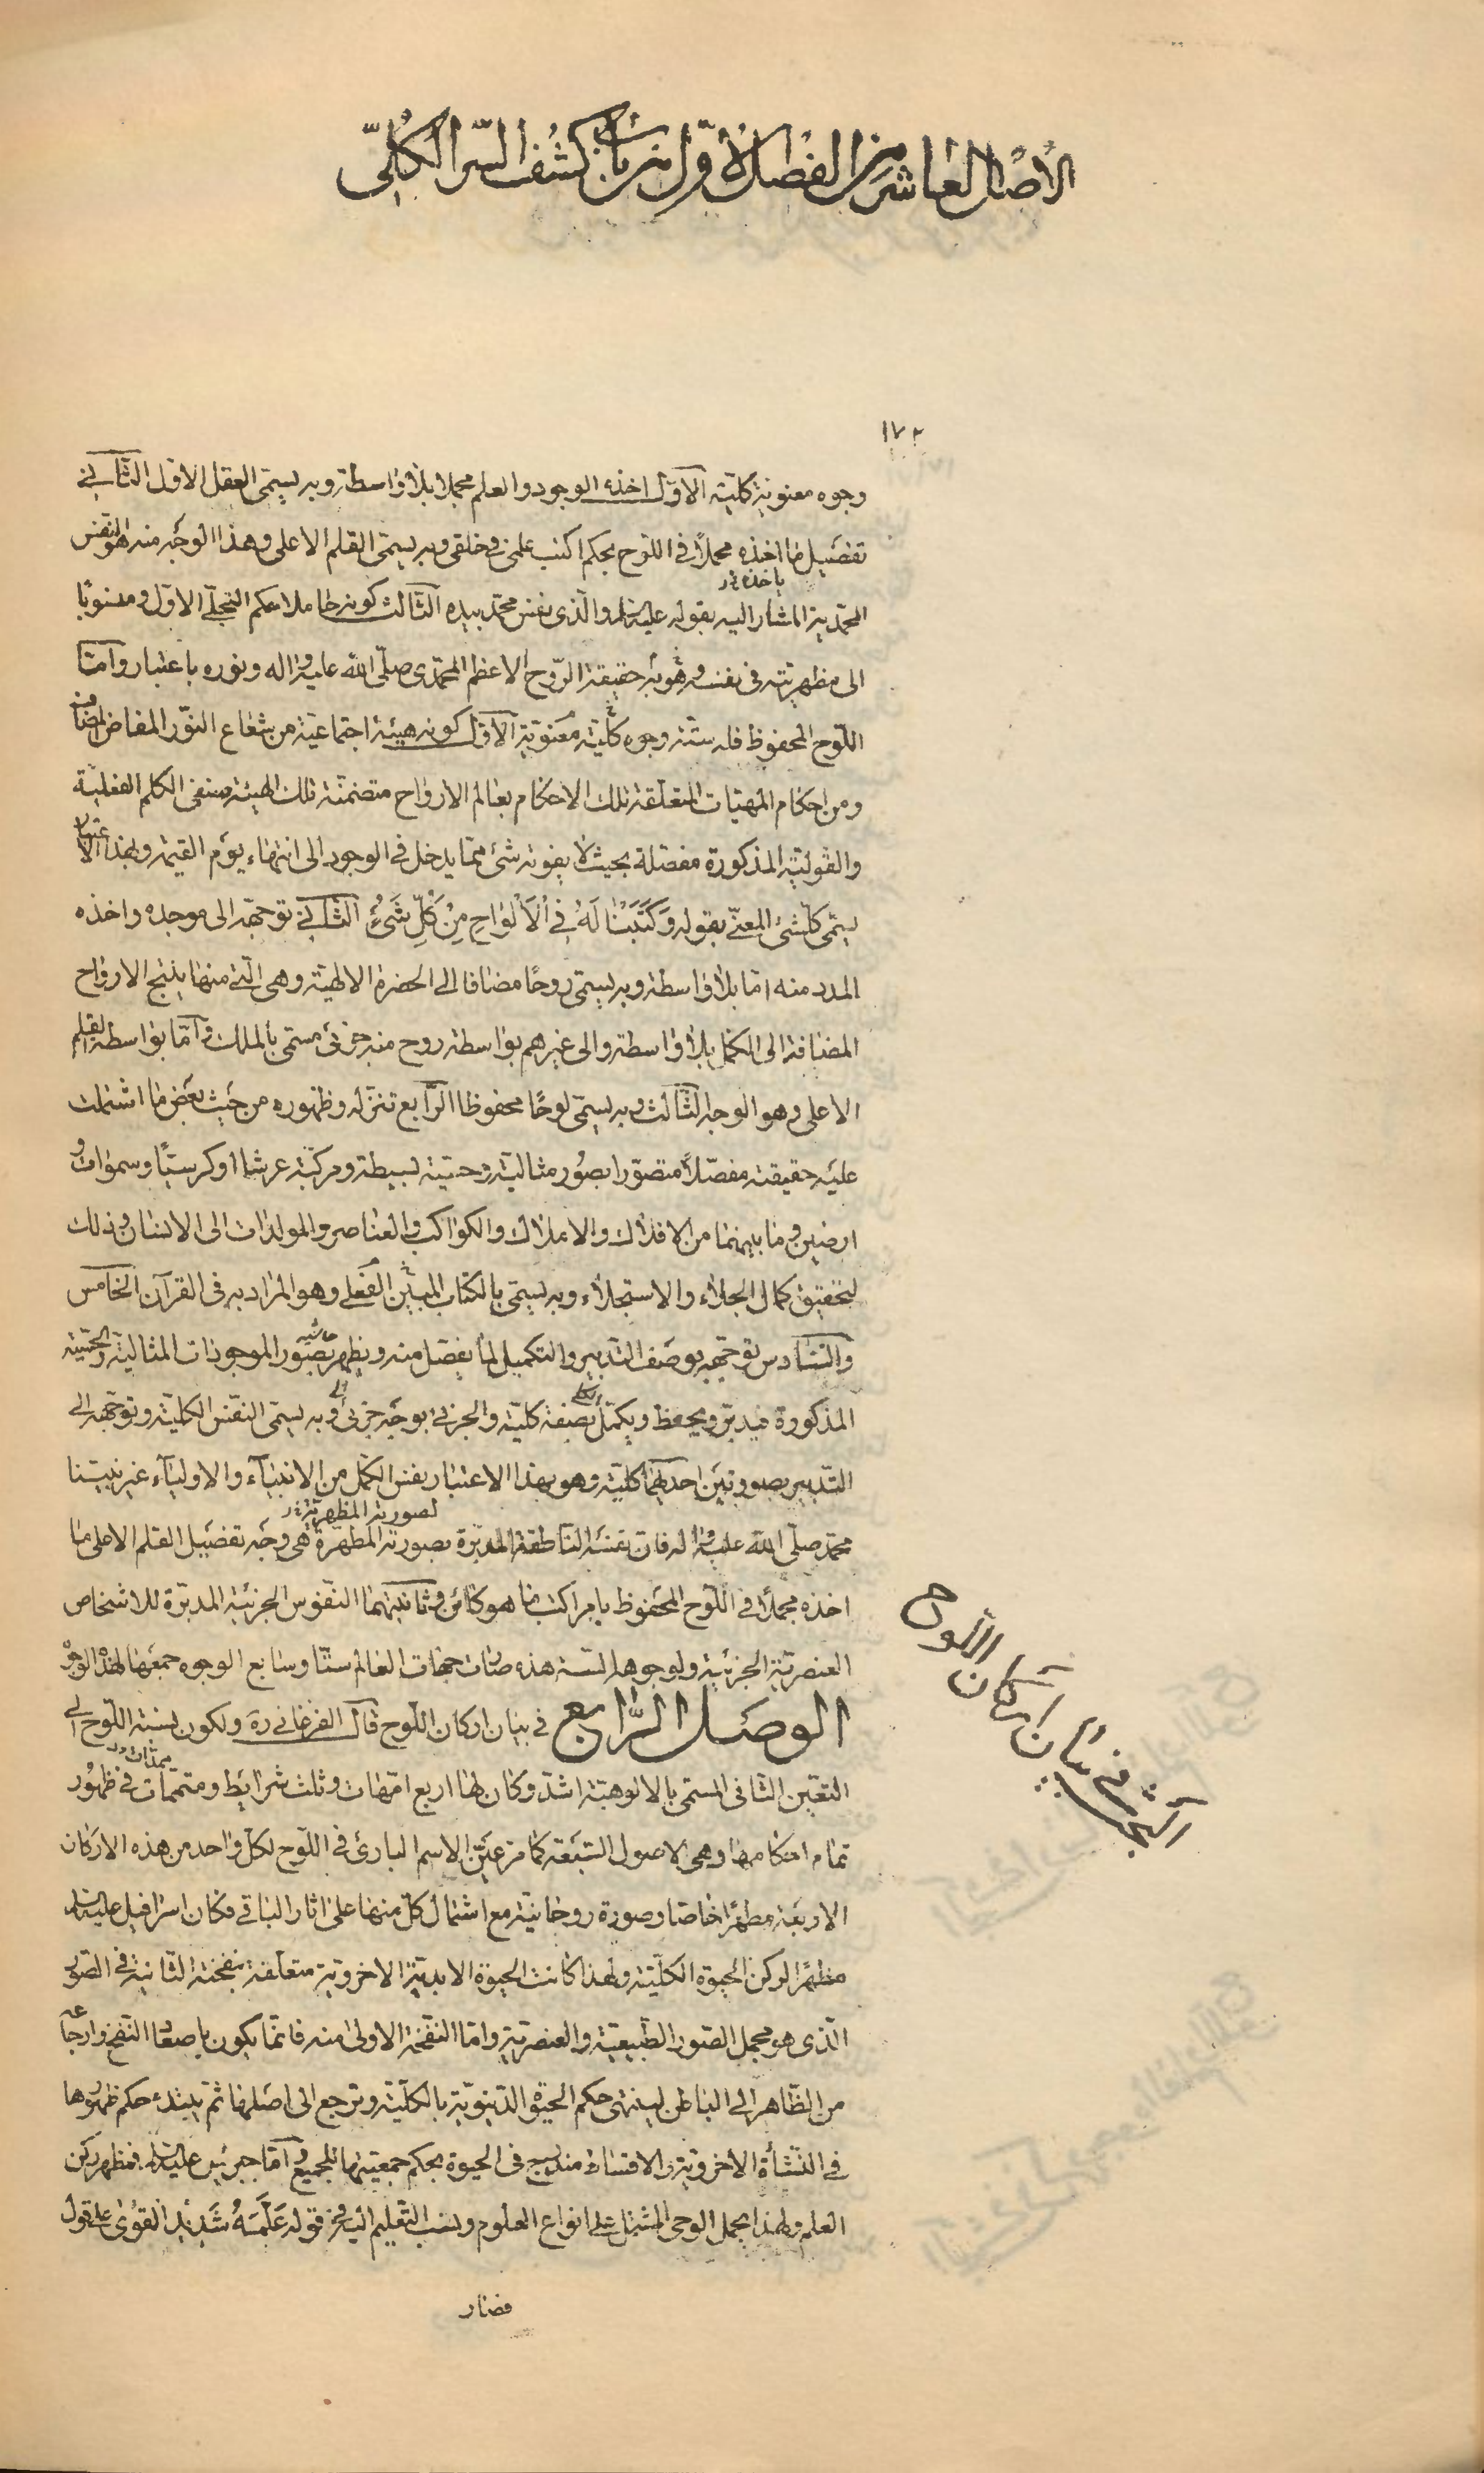 الأصل العاشر من الفصل الأوّل من باب كشف السّر الكلّيّ
١٧٢
وجوه معنوية كليّة الأوّل اخذه الوجود والعلم مجملا بلا واسطة وبه يسمّى العقل الاوّل الثّاني
تفصيل ما اخذه مجملًا في اللّوح بحكم اكتب علمي في خلقي وبه يسمّى القلم الاعلى وهذا الوجه منه هو النّفس
ياخذه
المحمّدية المشار اليه بقوله عليه السلم والّذي نفس محمّد بيده الثّالث كونه حاملا حكم التّجلّي الاوّل ومنسوبًا
الى مظهريّته في نفسه وهو به حقيقة الرّوح الاعظم المحمّدي صلّى الله عليه واله ونوره باعتبار وامّا
اللّوح المحفوظ فله ستّة وجوه كلّية معنويّة الاوّل كونه هيئة اجتماعيّة من شعاع النّور المفاض المضاف
ومن احكام المهيّات المتعلّقة تلك الاحكام بعالم الارواح متضمّنة تلك الهيئة صنفي الكلم الفعليّة
والقوليّة المذكورة مفصّلة بحيث لا يفوته شئ ممّا يدخل في الوجود الى انتهاء يوم القيمة وبهذا الاعتبار
يسمّى كلّشئ المعنّي بقوله وَكَتَبْنا لَهُ فِي الْأَلْواحِ مِنْ كُلِّ شَيْءٍ الثّاني توجّهه الى موجده واخذه
المدد منه امّا بلا واسطة وبه يسمّى روحًا مضافا الى الحضرة الالهيّة وهي الّتي منها ينتج الارواح
المضافة الى الكمّل بلا واسطة والى غيرهم بواسطة روح منه جزئى مسمّى بالملك وامّا بواسطة القلم
الاعلى وهو الوجه الثّالث وبه يسمّى لوحًا محفوظا الرّابع تنزّله وظهوره من حيث بعض ما اشتملت
عليه حقيقته مفصّلًا متصوّرا بصور مثاليّة وحسّية بسيطة ومركّبة عرشا او كرسيّا وسموات و
ارضين وما بينهما من الافلاك والاملاك والكواكب والعناصر والمولدات الى الانسان وذلك
لتحقيق كمال الجلاء والاستجلاء وبه يسمّى بالكتاب المبين الفعلي وهو المراد به في القرآن الخامس
والسّادس توجّهه بوصف التّدبير والتكميل لما يفصل منه ويظهر بصور الموجودات المثاليّة والحسّية
المذكورة فيدبّر ويحفظ ويكمّل بصفة كليّة والجزئي بوجه جزئى وبه يسمّى النّفس الكليّة وتوجّهه الى
التّدبير بصورتين احديهما كليّة وهو بهذا الاعتبار نفس الكمّل من الانبيآء والاوليآء غير نبيّنا
لصورته المظهريّة
محمّد صلّى الله عليه واله فان نفسه النّاطقة المدبّرة بصورته المطهرة هي وجه تفصيل القلم الاعلى ما
اخذه مجملًا في اللّوح المحفوظ بامر اكتب ما هو كائن وثانيتهما النّفوس الجزئيّة المدبّرة للاشخاص
العنصريّة الجزئية ولوجوهه السّتة هذه صارت جهات العالم ستّا وسابع الوجوه جمعها لهذه الوجوه
الوصل الرّابع في بيان اركان اللّوح قال الفرغاني ره ولكون نسبة اللّوح الى
التعّين الثّاني المسمّى بالالوهيّة اشدّ وكان لها اربع امّهات وثلث شرايط ومتمّمات في ظهور
تمام احكامها وهي الاصول السّبعة كما مر عيّن الاسم البارئ في اللّوح لكلّ واحد من هذه الاركان
الاربعة مظهرًا خاصّا وصورة روحانيّة مع اشتمال كلّ منها على اثار الباقي فكان اسرافيل عليه السلم
مظهرًا لركن الحيوة الكلّيّة ولهذا كانت الحيوة الابديّة الاخرويّة متعلّقة بنفخته الثّانية في الصّور
الّذي هو مجمل الصّور الطّبيعيّة والعنصريّة وامّا النّفخة الاولى منه فانّما يكون باصعاد النّفخ وارجاعه
من الظّاهر الى الباطن لينتهي حكم الحيوة الدّنيويّة بالكلّيّة وترجع الى اصلها ثمّ يبتدء حكم ظهورها
في النّشأة الاخرويّة والاقساط مندرج في الحيوة بحكم جمعيّتها للجميع وامّا جبرئيل عليه السلم فمظهر ركن
العلم ولهذا يحمل الوحى المشتمل على انواع العلوم ونسب التّعليم اليه في قوله عَلَّمَهُ شَدِيدُ الْقُوى على قول
فصار
البحث في بيان اركان اللّوح